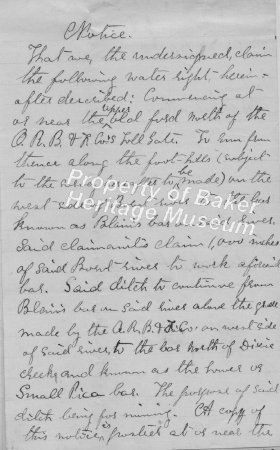 Notice.
That we, the undersigned, claim
the following water right, herein-
after described: Commencing at
upper
or near the old ford north of the
O. R. B. & F. Co's Toll Gate. To run from
thence along the foot-hills (subject
be
to the made) on the
west side of
known as Blain's bar on said river.
Said claimants claim 1,000 inches
of said Burnt river to work aforesaid
bar. Said ditch to continue from
Blain's bar on said river along the grade
made by the O.R.B.&F.Co. on west side
of said river, to the bar north of Dixie
creek and known as the lower or
Small Pica bar. The purpose of said
ditch being for mining. A copy of
is
this notice posted at or near the
Property of Baker
Heritage Museum